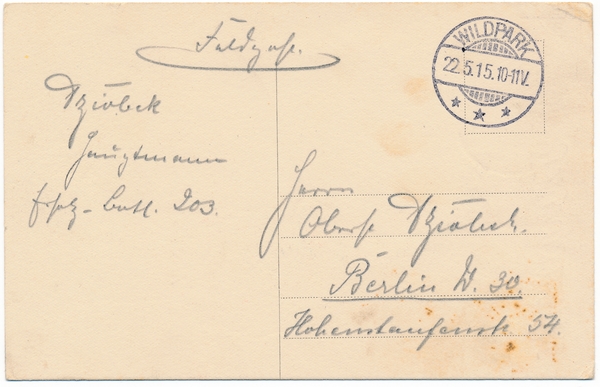 Feldpost.
WILDPARK
22.5.15.10-11V.
Dziobek
Hauptmann
Ers.- Batl. 203.
Herrn
Oberst Dziobek.
Berlin W. 30.
Hohenstaufenstr 54.